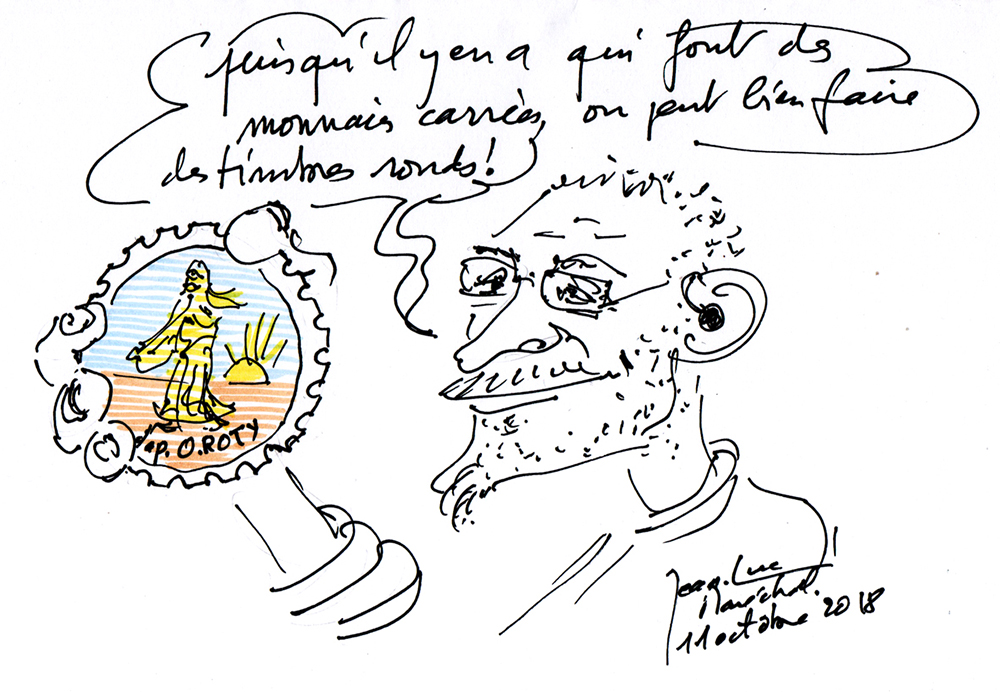 puisqu'il y en a qui font des
monnaies carrées, on peut bien faire
des timbres ronds!
d'ap. O. ROTY
Jean-Luc
Maréchal.
11 octobre 2018